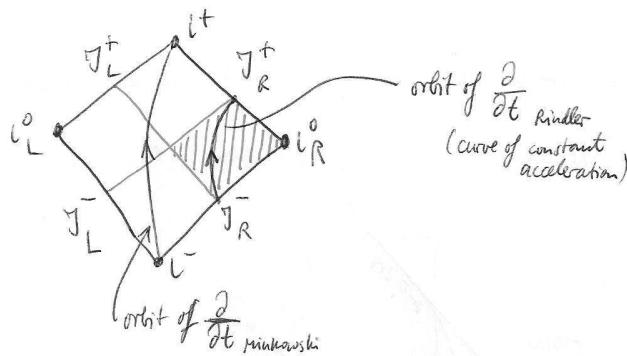 i⁺
ℐ⁺_L
ℐ⁺_R
i⁰_L
i⁰_R
ℐ⁻_L
ℐ⁻_R
i⁻
orbit of ∂/∂t Rindler
(curve of constant
acceleration)
orbit of ∂/∂t Minkowski